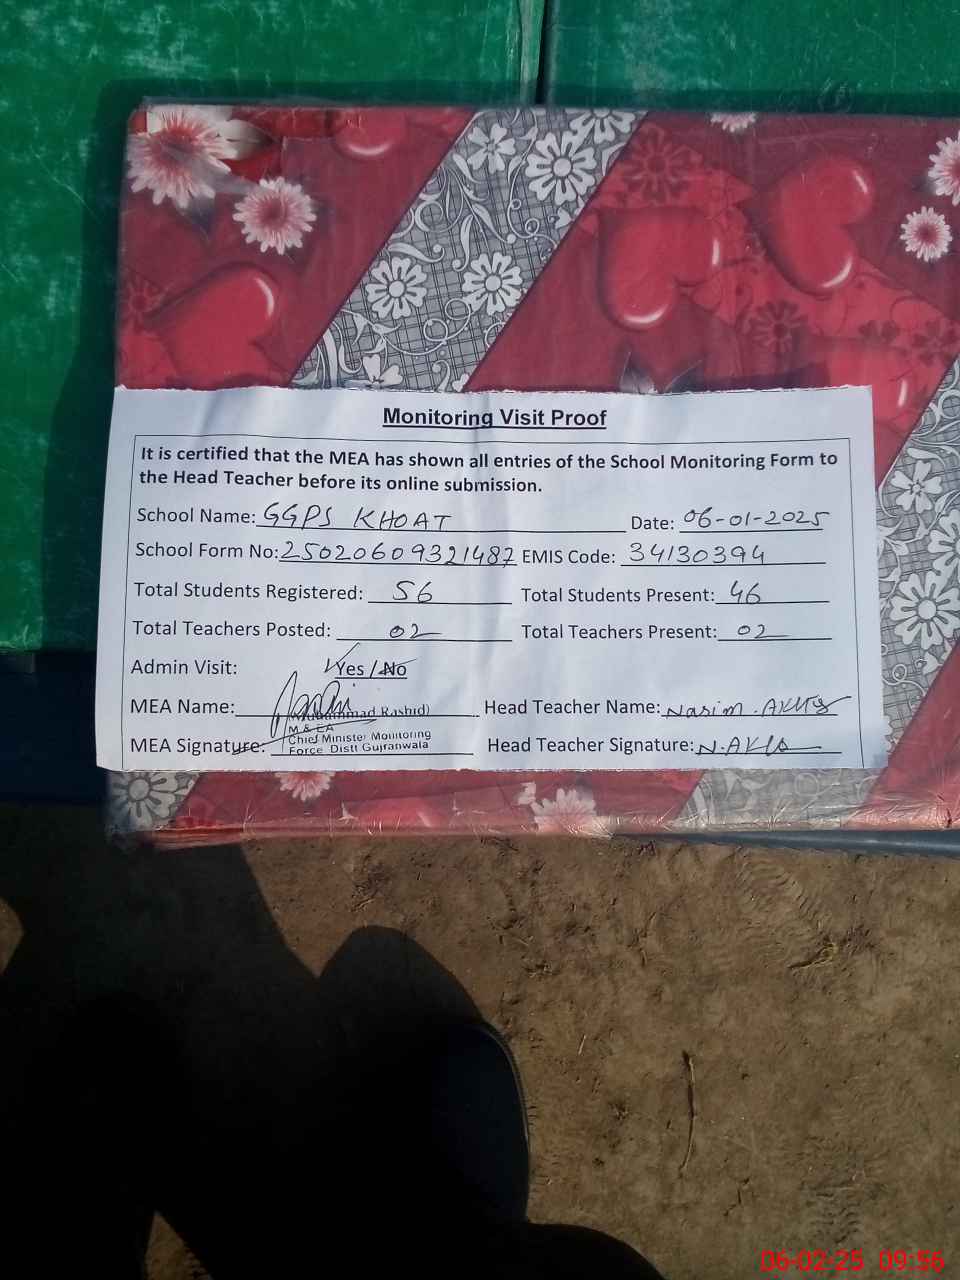 Monitoring Visit Proof
It is certified that the MEA has shown all entries of the School Monitoring Form to
the Head Teacher before its online submission.
School Name: GGPS KHOAT Date: 06-01-2025
School Form No: 25020609321487 EMIS Code: 34130394
Total Students Registered: 56 Total Students Present: 46
Total Teachers Posted: 02 Total Teachers Present: 02
Admin Visit: Yes / No
MEA Name: (Muhammad Rashid) Head Teacher Name: Nasim
M & EA
Chief Minister Monitoring
MEA Signature: Force Distt Gujranwala Head Teacher Signature:
06-02-25 09:56